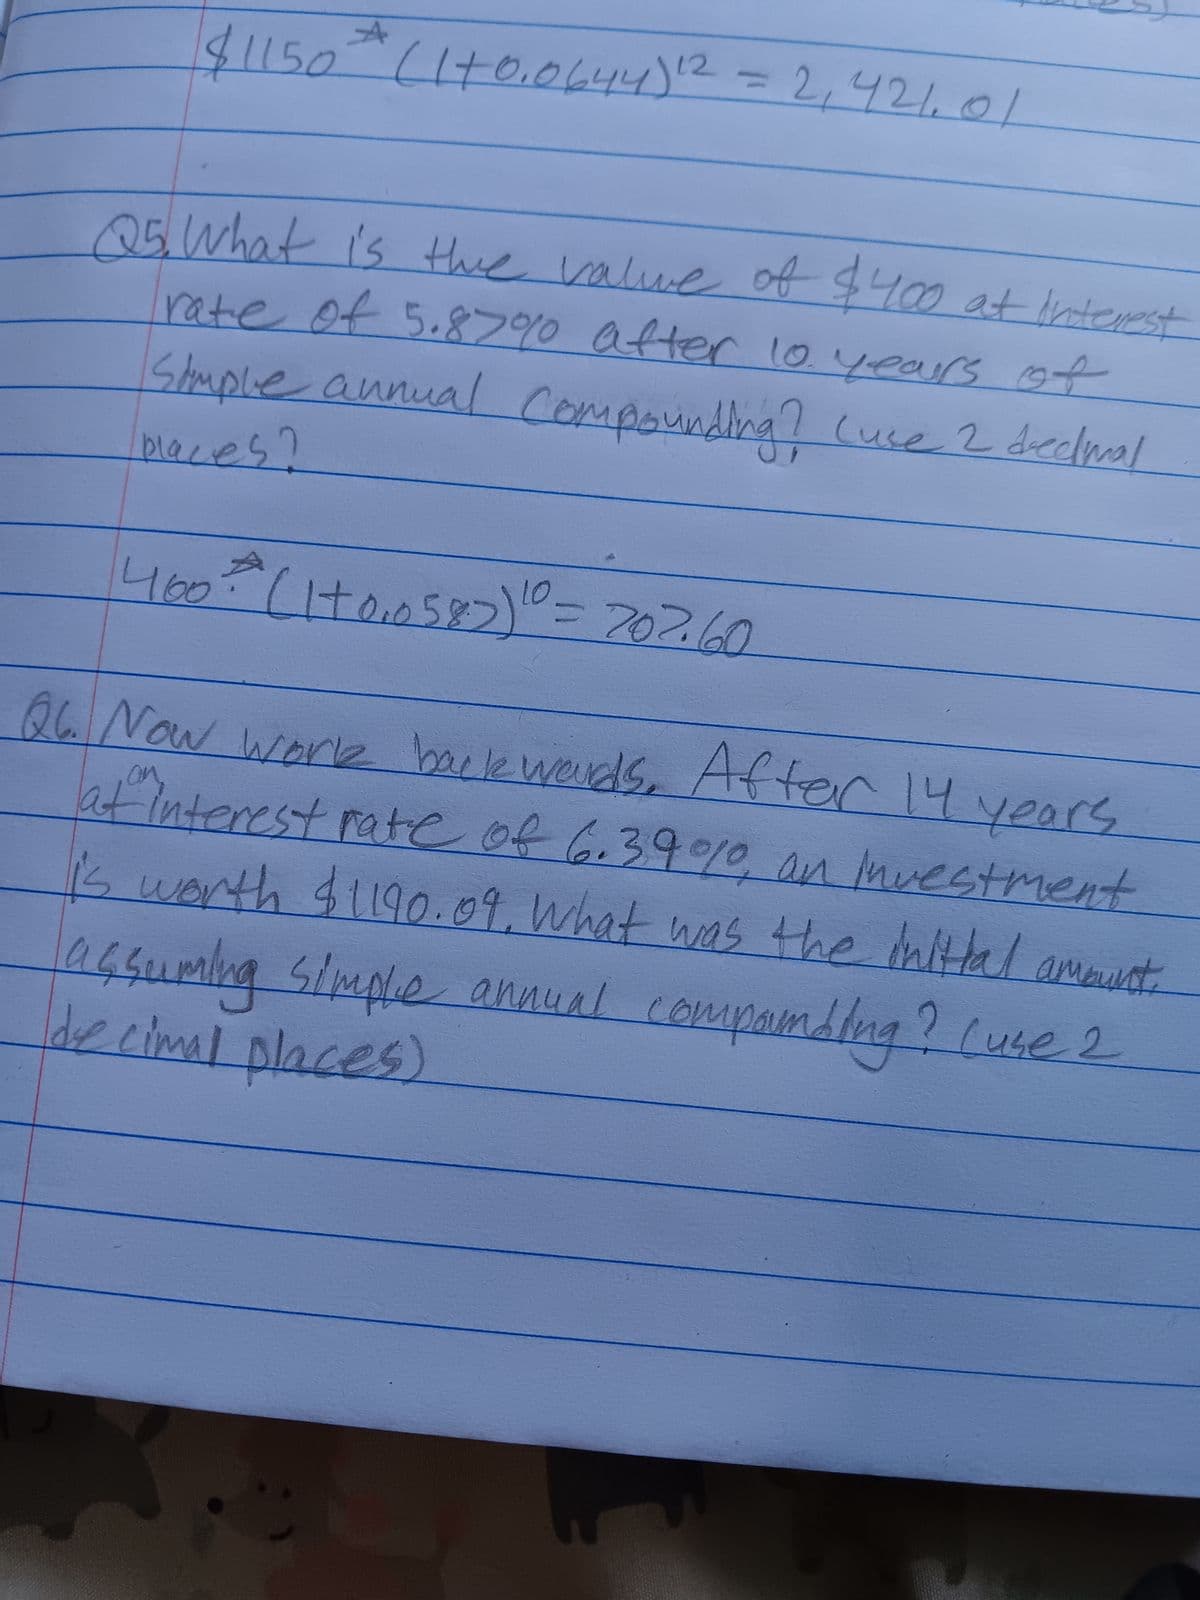 $1150 * (1+0.0644)¹² = 2,421.01
Q5. What is the value of $400 at interest
rate of 5.87% after 10 years of
simple annual compounding? (use 2 decimal
places?
400 * (1+0.0587)¹⁰ = 707.60
Q6. Now work backwards. After 14 years
at an interest rate of 6.39%, an investment
is worth $1190.09. What was the initial amount,
assuming simple annual compounding? (use 2
decimal places)